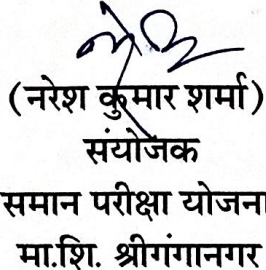 (नरेश कुमार शर्मा)
संयोजक
समान परीक्षा योजना
मा.शि. श्रीगंगानगर